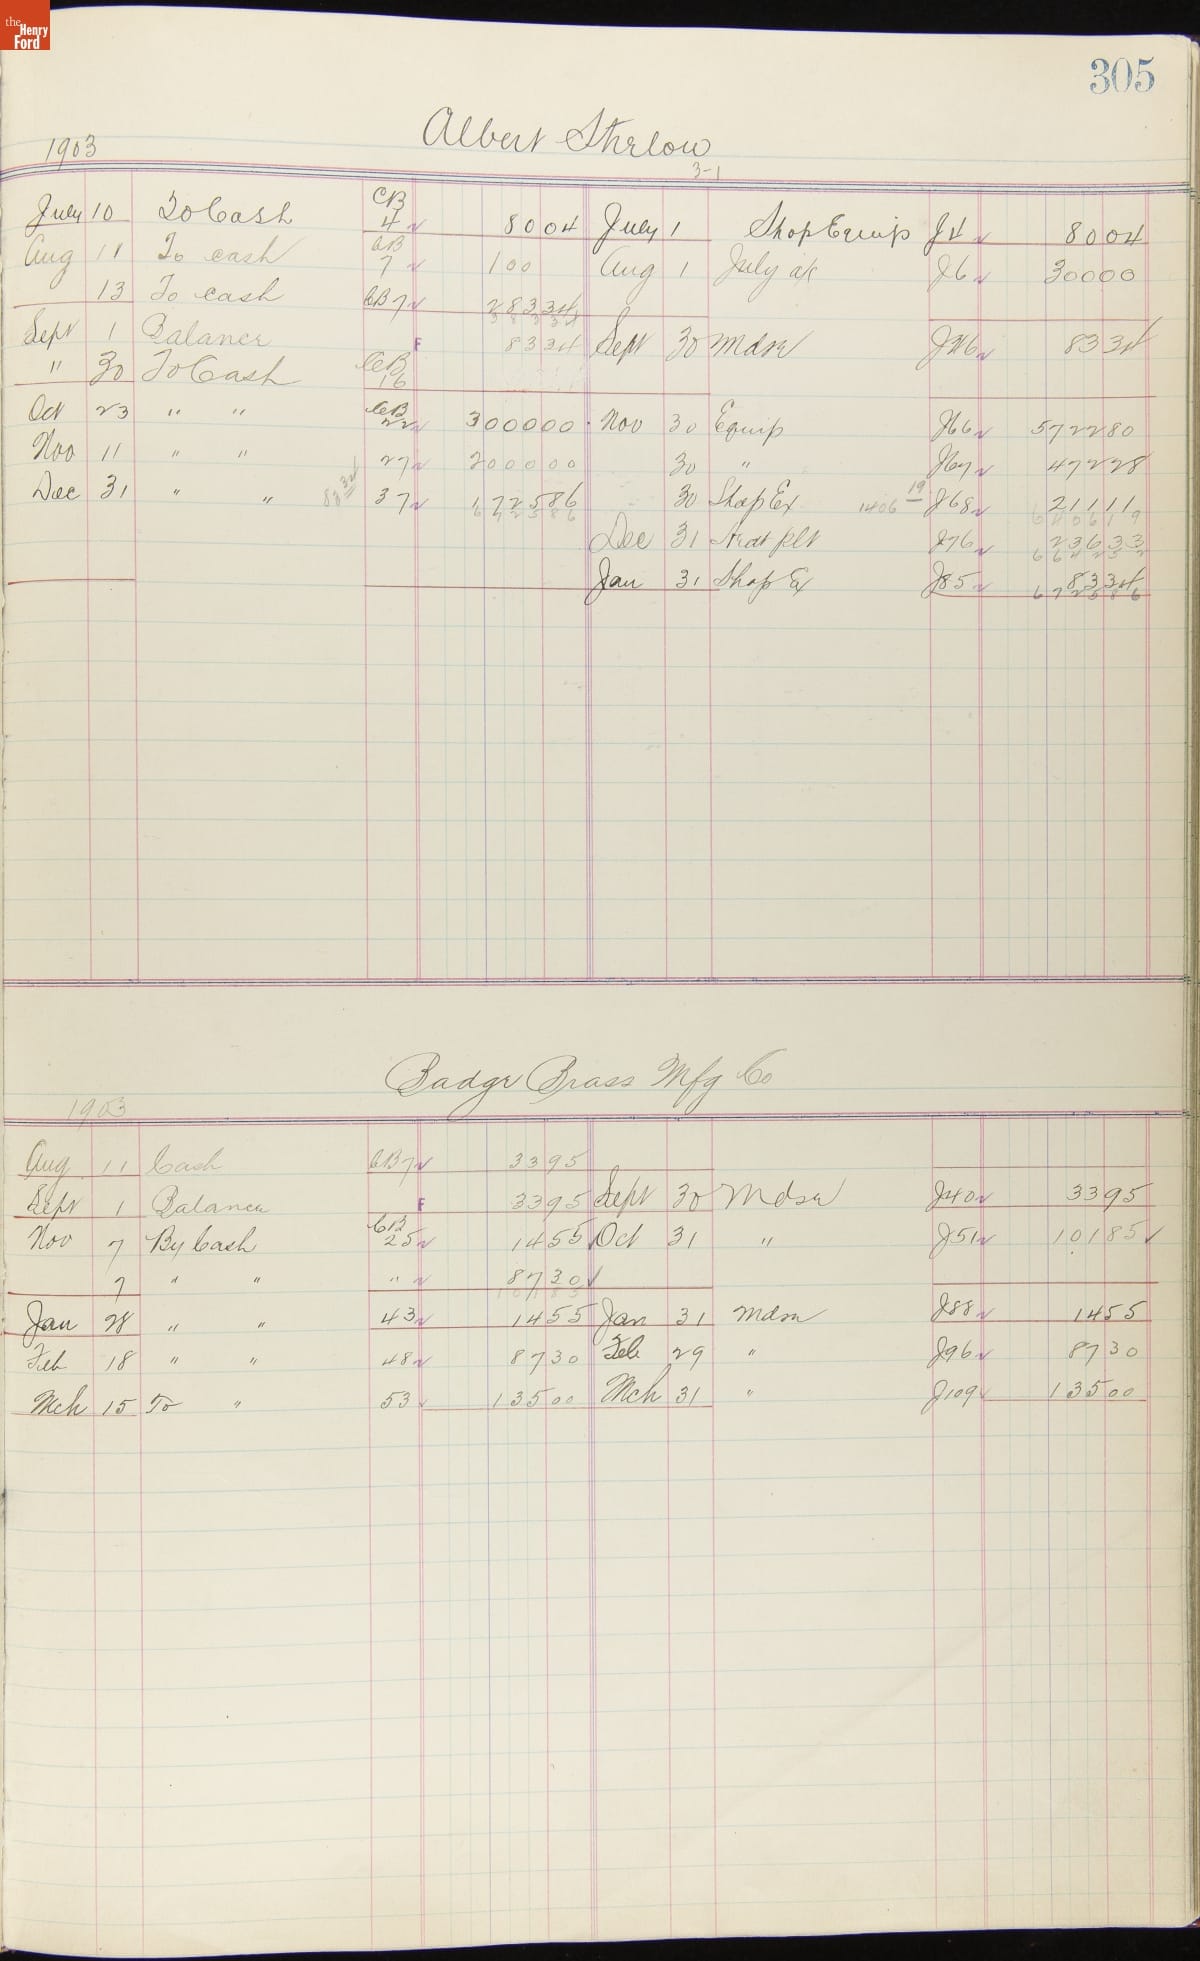 the Henry Ford
305
Albert Strelow
1903
3-1
July 10 To Cash CB 4 80 04 July 1 Shop Equip J4 80 04
Aug 11 To cash CB 7 100 Aug 1 July a/c J6 300 00
13 To cash CB 7 283 34
383 34
Sept 1 Balance F 83 34 Sept 30 Mdse 83 34
" 30 To Cash CB 16
Oct 23 " " CB 22 3000 00 Nov 30 Equip J66 5722 80
Nov 11 " " 27 2000 00 30 " J67 472 28
Dec 31 " " 83 34 37 1725 86 30 Shop Ex 1406 19 J68 211 11
6725 86 6406 19
Dec 31 J76 236 33
6642 52
Jan 31 Shop Ex J85 83 34
6725 86
Badger Brass Mfg Co
1903
Aug 11 Cash CB 7 33 95
Sept 1 Balance F 33 95 Sept 30 Mdse J40 33 95
Nov 7 By Cash CB 25 14 55 Oct 31 " J51 101 85
7 " " " 87 30
101 85
Jan 28 " " 43 14 55 Jan 31 Mdse J88 14 55
Feb 18 " " 48 87 30 Feb 29 " J96 87 30
Mch 15 To " 53 135 00 Mch 31 " J109 135 00